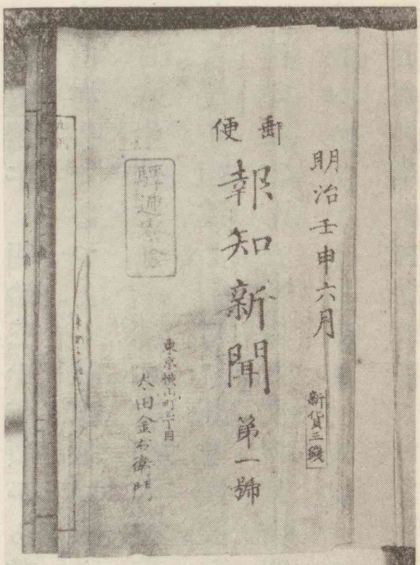 明治壬申六月
新貨三錢
郵便
報知新聞 第一號
東京横山町三丁目
太田金右衛門